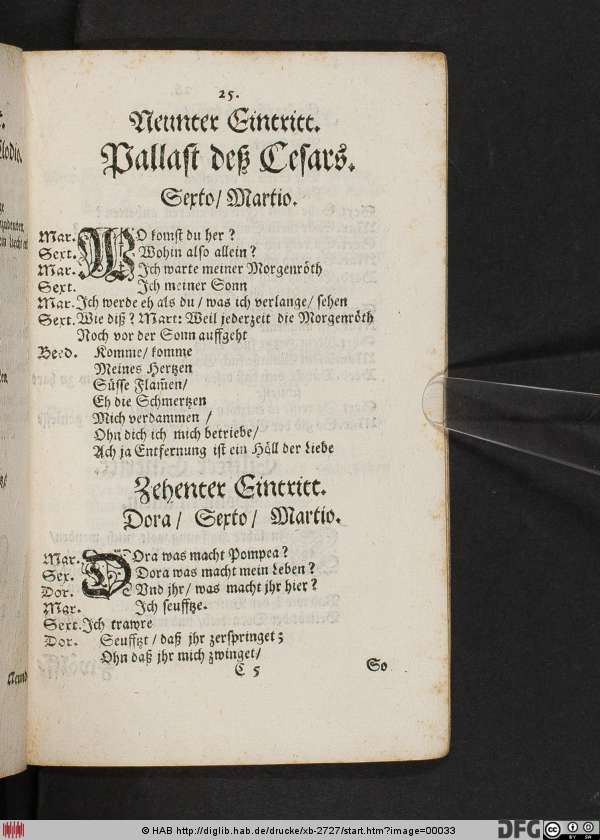 25.
Neunter Eintritt.
Pallast deß Cesars.
Sexto/ Martio.
Mar. WO komst du her?
Sext. Wohin also allein?
Mar. Ich warte meiner Morgenröth
Sext. Ich meiner Sonn
Mar. Ich werde eh als du/ was ich verlange/ sehen
Sext. Wie diß? Mart: Weil jederzeit die Morgenröth
Noch vor der Sonn auffgeht
Beed. Komme/ komme
Meines Hertzen
Süsse Flam̃en/
Eh die Schmertzen
Mich verdammen/
Ohn dich ich mich betriebe/
Ach ja Entfernung ist ein Höll der Liebe
Zehenter Eintritt.
Dora/ Sexto/ Martio.
Mar. DOra was macht Pompea?
Sex. Dora was macht mein Leben?
Dor. Vnd jhr/ was macht jhr hier?
Mar. Ich seufftze.
Sext. Ich trawre
Dor. Seufftzt/ daß jhr zerspringet;
Ohn daß jhr mich zwinget/
C 5 So
© HAB http://diglib.hab.de/drucke/xb-2727/start.htm?image=00033
DFG
cc BY SA